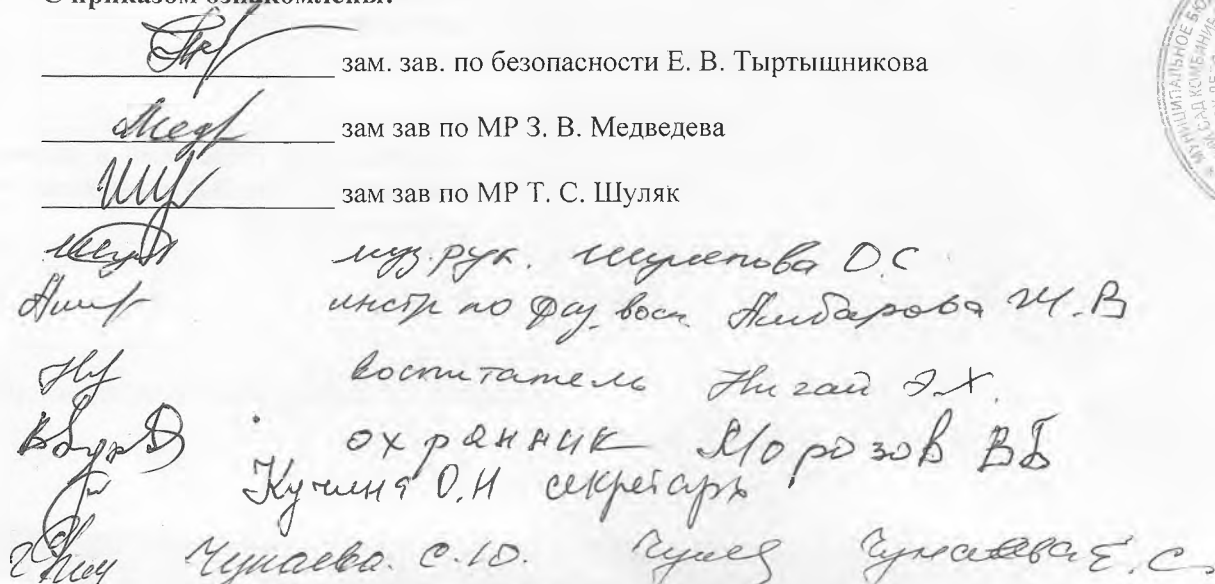 С приказом ознакомлены:
зам. зав. по безопасности Е. В. Тыртышникова
зам зав по МР З. В. Медведева
зам зав по МР Т. С. Шуляк
муз. рук. О.С
инстр по физ. восп Ж.В
воспитатель Нигай Э.Х.
охранник Морозов ВБ
Кучина О.Н секретарь
Чунаева. С.Ю. Е.С.
МУНИЦИПАЛЬНОЕ